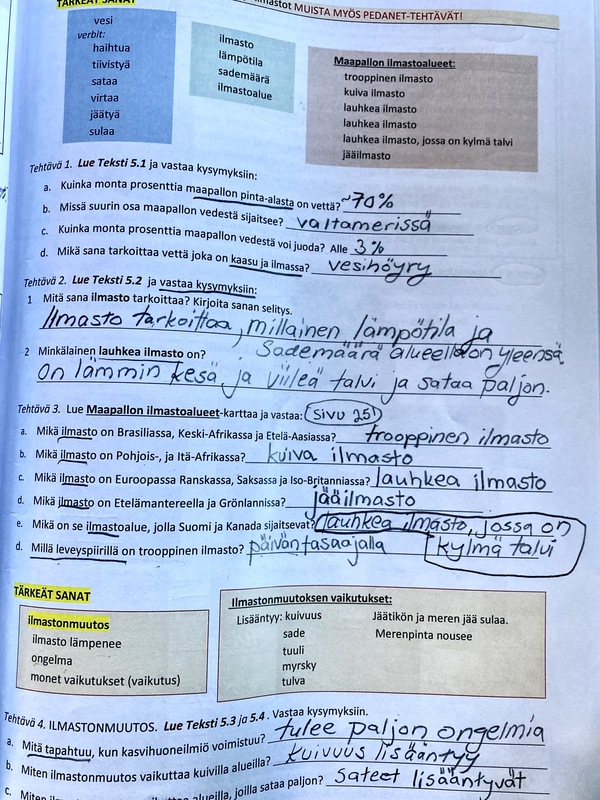 TÄRKEÄT SANAT
ilmastot MUISTA MYÖS PEDANET-TEHTÄVÄT!
vesi
verbit:
haihtua
tiivistyä
sataa
virtaa
jäätyä
sulaa
ilmasto
lämpötila
sademäärä
ilmastoalue
Maapallon ilmastoalueet:
trooppinen ilmasto
kuiva ilmasto
lauhkea ilmasto
lauhkea ilmasto
lauhkea ilmasto, jossa on kylmä talvi
jääilmasto
Tehtävä 1. Lue Teksti 5.1 ja vastaa kysymyksiin:
a. Kuinka monta prosenttia maapallon pinta-alasta on vettä? ~70%
b. Missä suurin osa maapallon vedestä sijaitsee? valtamerissä
c. Kuinka monta prosenttia maapallon vedestä voi juoda? Alle 3%
d. Mikä sana tarkoittaa vettä joka on kaasu ja ilmassa? vesihöyry
Tehtävä 2. Lue Teksti 5.2 ja vastaa kysymyksiin:
1 Mitä sana ilmasto tarkoittaa? Kirjoita sanan selitys.
Ilmasto tarkoittaa, millainen lämpötila ja
sademäärä alueella on yleensä.
2 Minkälainen lauhkea ilmasto on?
On lämmin kesä ja viileä talvi ja sataa paljon.
Tehtävä 3. Lue Maapallon ilmastoalueet-karttaa ja vastaa: (sivu 25!)
a. Mikä ilmasto on Brasiliassa, Keski-Afrikassa ja Etelä-Aasiassa? trooppinen ilmasto
b. Mikä ilmasto on Pohjois-, ja Itä-Afrikassa? kuiva ilmasto
c. Mikä ilmasto on Euroopassa Ranskassa, Saksassa ja Iso-Britanniassa? lauhkea ilmasto
d. Mikä ilmasto on Etelämantereella ja Grönlannissa? jääilmasto
e. Mikä on se ilmastoalue, jolla Suomi ja Kanada sijaitsevat? lauhkea ilmasto, jossa on
kylmä talvi
d. Millä leveyspiirillä on trooppinen ilmasto? päiväntasaajalla
TÄRKEÄT SANAT
ilmastonmuutos
ilmasto lämpenee
ongelma
monet vaikutukset (vaikutus)
Ilmastonmuutoksen vaikutukset:
Lisääntyy: kuivuus
sade
tuuli
myrsky
tulva
Jäätikön ja meren jää sulaa.
Merenpinta nousee
Tehtävä 4. ILMASTONMUUTOS. Lue Teksti 5.3 ja 5.4. Vastaa kysymyksiin.
a. Mitä tapahtuu, kun kasvihuoneilmiö voimistuu? tulee paljon ongelmia
b. Miten ilmastonmuutos vaikuttaa kuivilla alueilla? kuivuus lisääntyy
c. Miten alueilla, joilla sataa paljon? sateet lisääntyvät